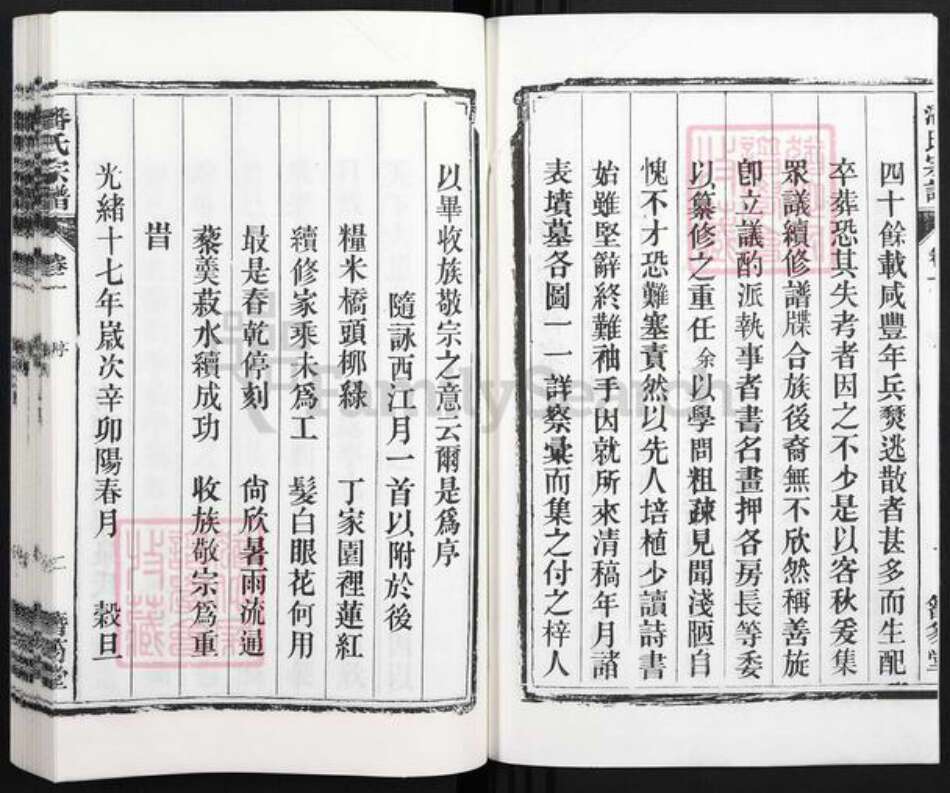 四十餘載咸豐年兵燹逃散者甚多而生配
卒葬恐其失考者因之不少是以客秋爰集
眾議續修譜牒合族後裔無不欣然稱善旋
卽立議酌派執事者書名畫押各房長等委
以纂修之重任余以學問粗疎見聞淺陋自
愧不才恐難塞責然以先人培植少讀詩書
始雖堅辭終難袖手因就所來清稿年月諸
表墳墓各圖一一詳察彙而集之付之梓人
以畢收族敬宗之意云爾是為序
隨詠西江月一首以附於後
糧米橋頭柳綠 丁家園裡蓮紅
續修家乘未為工 髮白眼花何用
最是春乾停刻 尙欣暑雨流通
藜羹菽水續成功 收族敬宗為重
旹
光緒十七年嵗次辛卯陽春月 穀旦
潘氏宗譜 卷一 序
FamilySearch